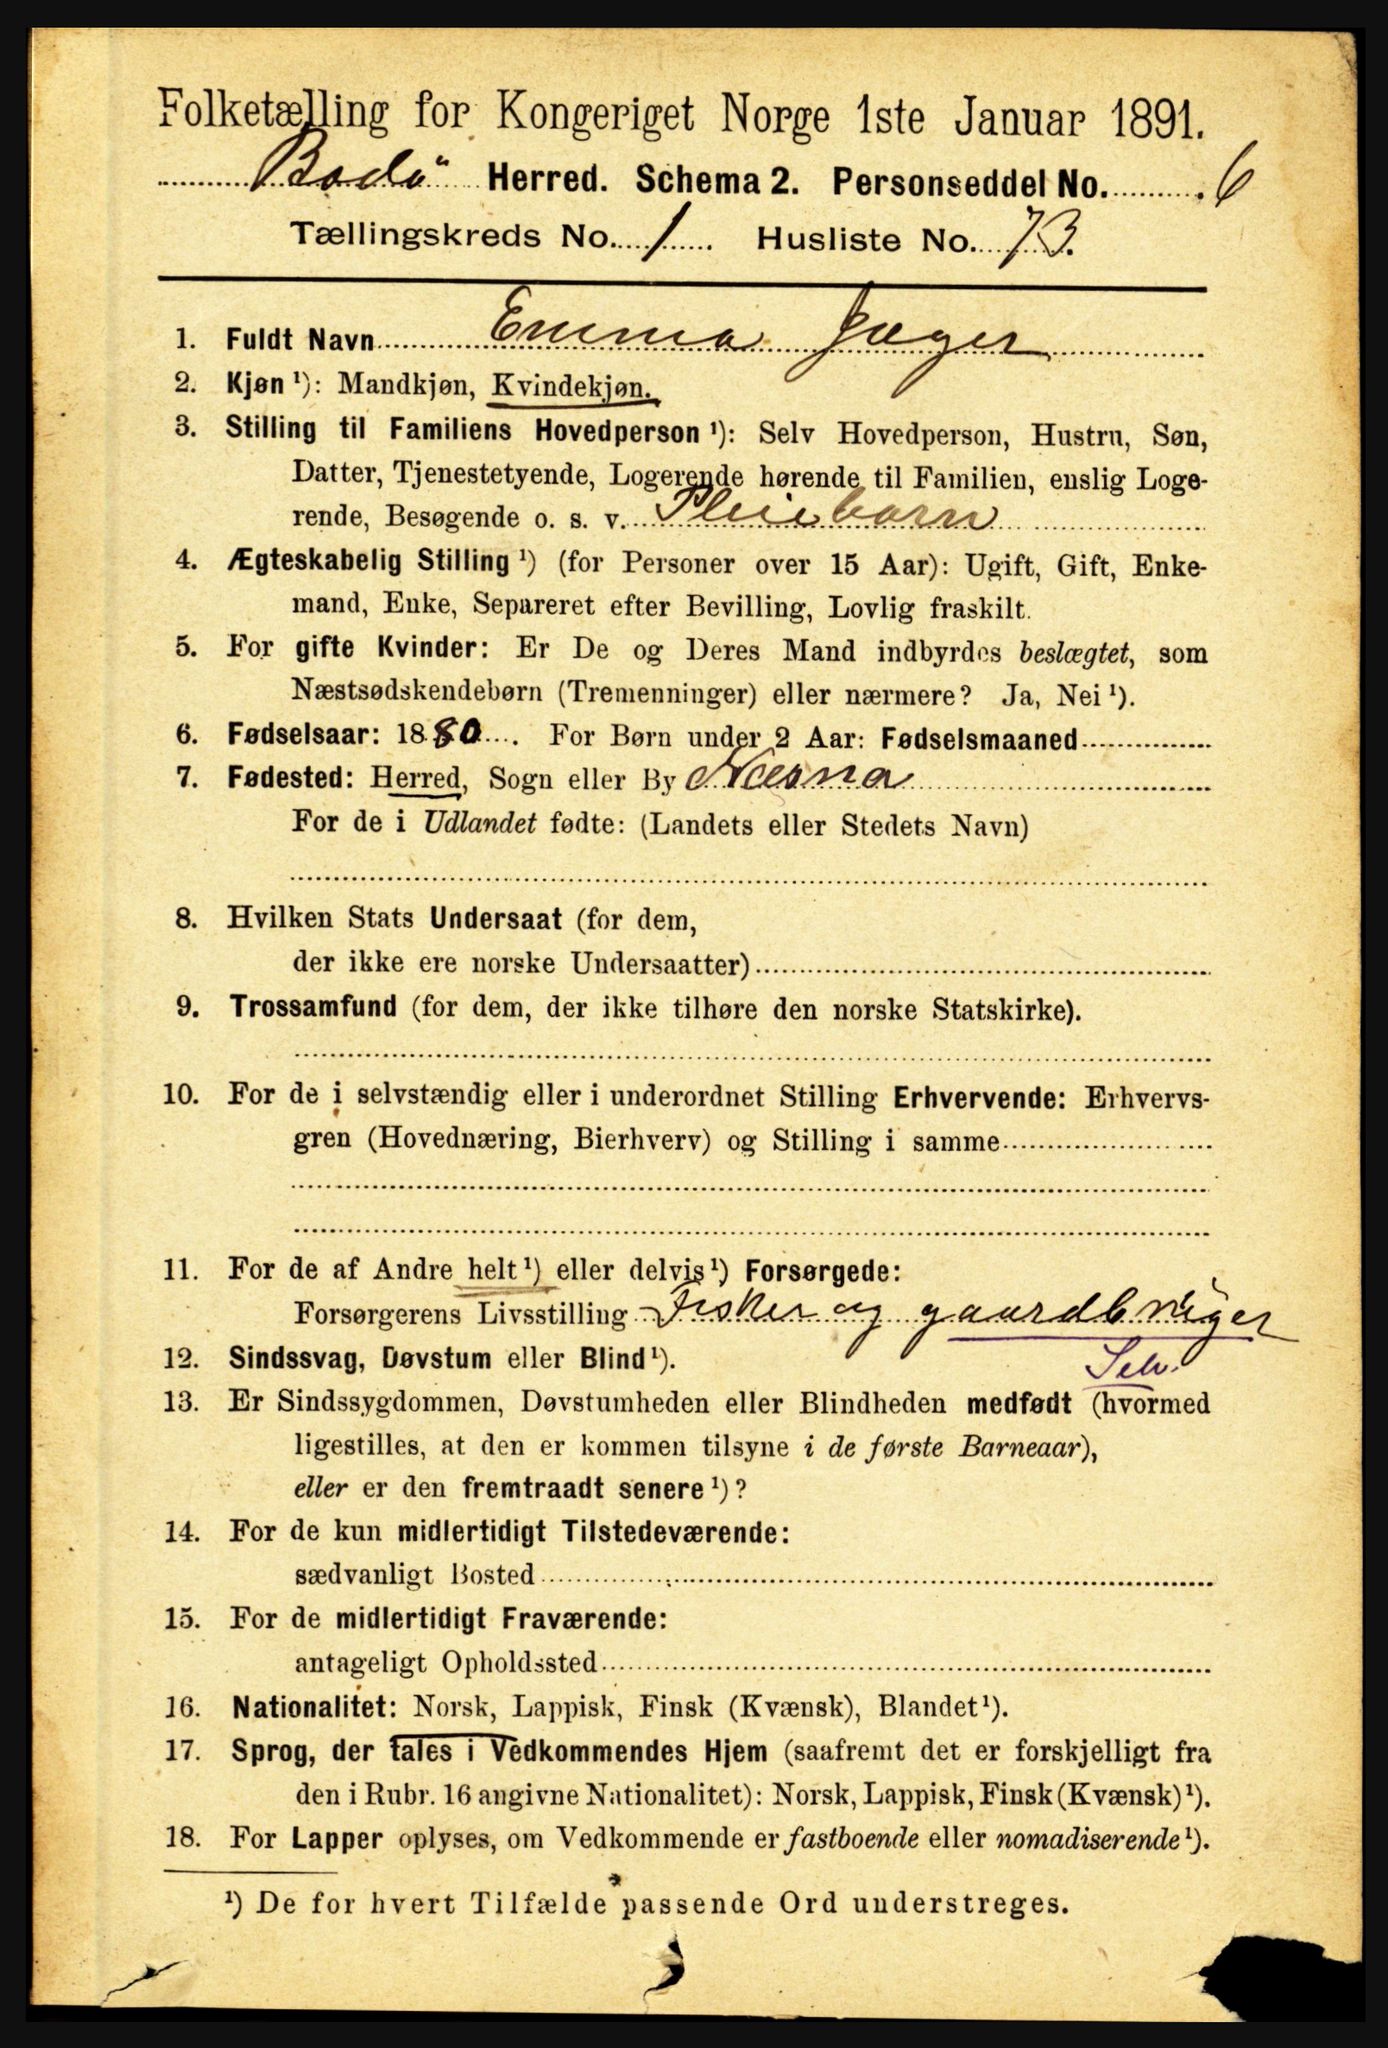 Folketælling for Kongeriget Norge 1ste Januar 1891.
Bodö Herred. Schema 2. Personseddel No. 6
Tællingskreds No. 1 Husliste No. 73.
1. Fuldt Navn Emma Jæger
2. Kjøn ¹): Mandkjøn, Kvindekjøn.
3. Stilling til Familiens Hovedperson ¹): Selv Hovedperson, Hustru, Søn,
Datter, Tjenestetyende, Logerende hørende til Familien, enslig Loge-
rende, Besøgende o. s. v. Pleiebarn
4. Ægteskabelig Stilling ¹) (for Personer over 15 Aar): Ugift, Gift, Enke-
mand, Enke, Separeret efter Bevilling, Lovlig fraskilt.
5. For gifte Kvinder: Er De og Deres Mand indbyrdes beslægtet, som
Næstsødskendebørn (Tremenninger) eller nærmere? Ja, Nei ¹).
6. Fødselsaar: 1880. For Børn under 2 Aar: Fødselsmaaned
7. Fødested: Herred, Sogn eller By Næsna
For de i Udlandet fødte: (Landets eller Stedets Navn)
8. Hvilken Stats Undersaat (for dem,
der ikke ere norske Undersaatter)
9. Trossamfund (for dem, der ikke tilhøre den norske Statskirke).
10. For de i selvstændig eller i underordnet Stilling Erhvervende: Erhvervs-
gren (Hovednæring, Bierhverv) og Stilling i samme
11. For de af Andre helt ¹) eller delvis ¹) Forsørgede:
Forsørgerens Livsstilling Fisker og gaardbruger
12. Sindssvag, Døvstum eller Blind ¹). Selv.
13. Er Sindssygdommen, Døvstumheden eller Blindheden medfødt (hvormed
ligestilles, at den er kommen tilsyne i de første Barneaar),
eller er den fremtraadt senere ¹)?
14. For de kun midlertidigt Tilstedeværende:
sædvanligt Bosted
15. For de midlertidigt Fraværende:
antageligt Opholdssted
16. Nationalitet: Norsk, Lappisk, Finsk (Kvænsk), Blandet ¹).
17. Sprog, der tales i Vedkommendes Hjem (saafremt det er forskjelligt fra
den i Rubr. 16 angivne Nationalitet): Norsk, Lappisk, Finsk (Kvænsk) ¹).
18. For Lapper oplyses, om Vedkommende er fastboende eller nomadiserende ¹).
¹) De for hvert Tilfælde passende Ord understreges.